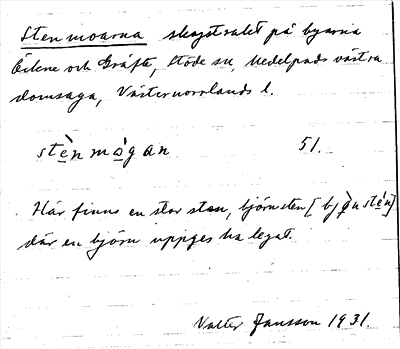 Stenmoarna skogstrakt på byarna
Edene och Gräfte, Stöde sn, Medelpads västra
domsaga, Västernorrlands l.
stènmògan 51.
Här finns en stor sten, björnsten [bjɷ̀nstén]
där en björn uppges ha legat.
Valter Jansson 1931.